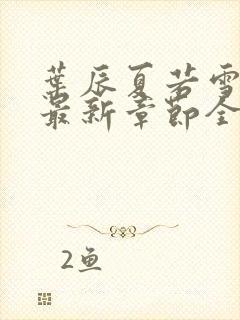 葉辰夏若雪
最新章節全
2魚